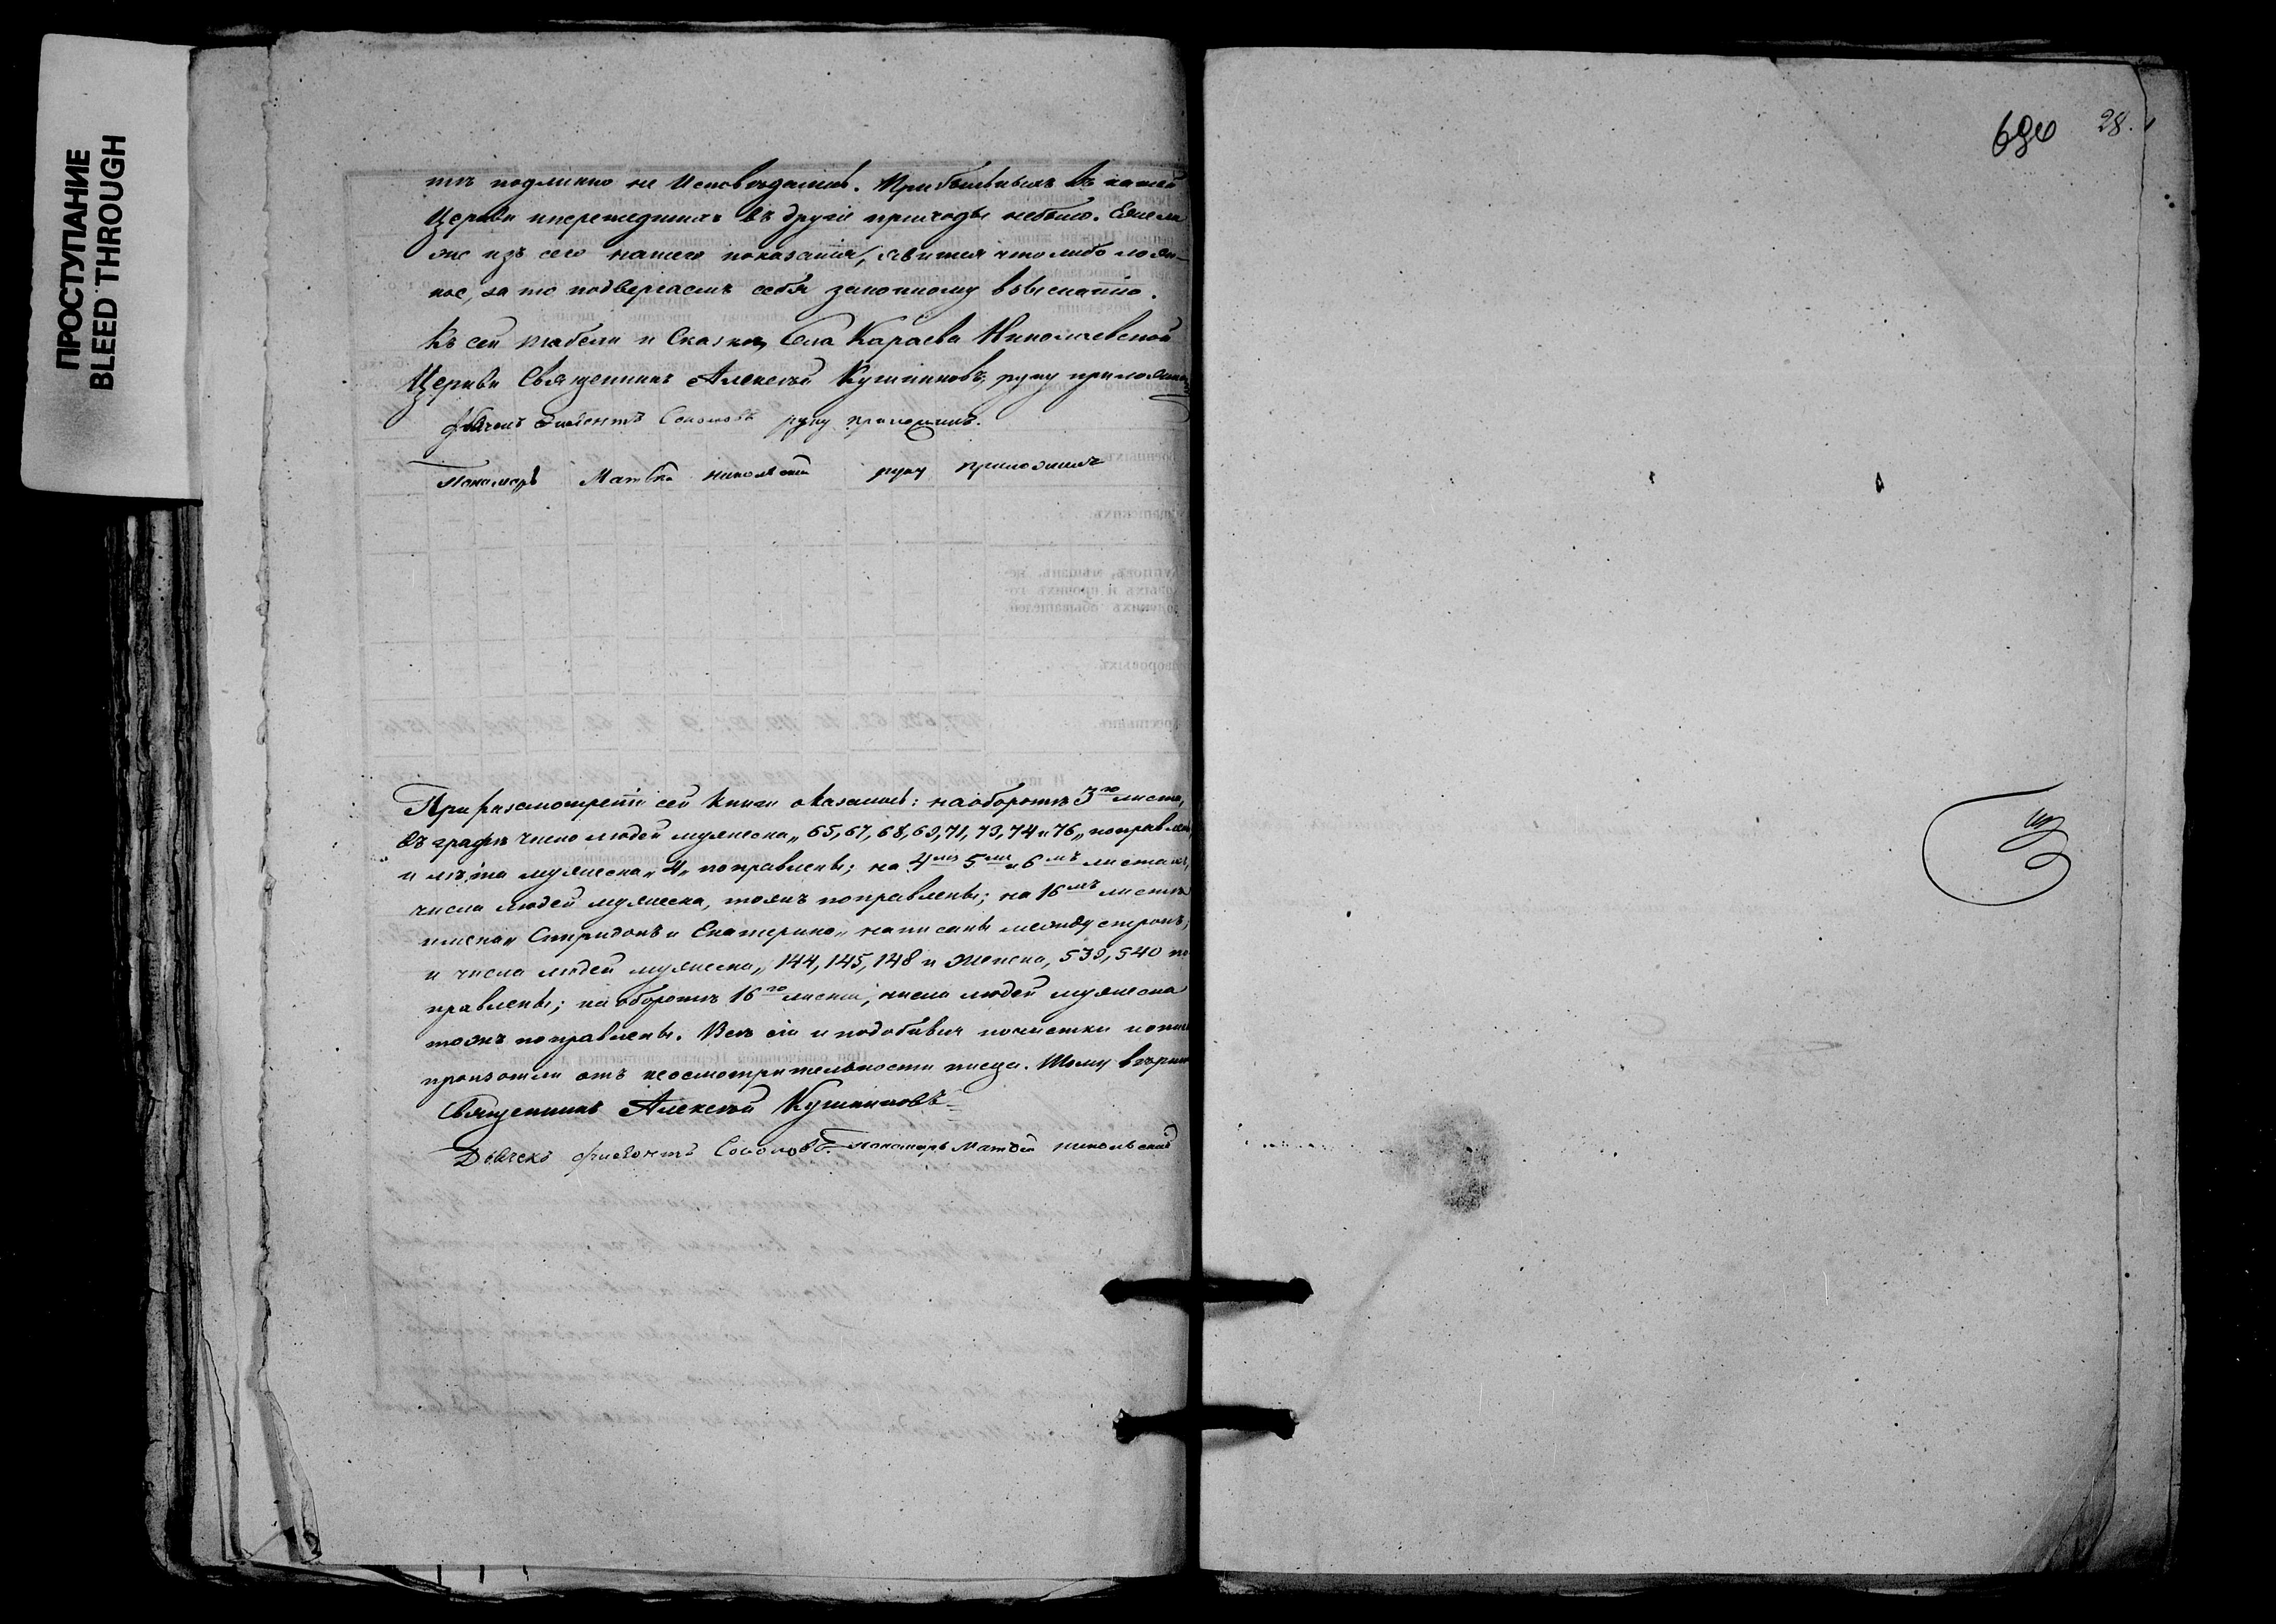 ПРОСТУПАНИЕ
BLEED THROUGH
696 28.
тѣ подлинно не Исповѣдались. Прибывшихъ къ нашей
Церкви и перешедшихъ въ другіе приходы небыло. Ежели
же изъ сего нашего показанія, явится что либо лож-
ное, за то подвергаемъ себя законному взысканію.
Къ сей табели и Сказкѣ, Села Караева Николаевской
Церкви Священникъ Алексѣй руку приложилъ
Соколовъ руку приложилъ.
Пономарь Матвѣй Никольскій руку приложилъ
При разсмотреніи сей книги оказалось: на оборотѣ 3го листа,
въ графѣ число людей мужеска „65, 67, 68, 69, 71, 73, 74 и 76„ поправлены
и лѣта мужеска „4„ поправлены; на 4мъ 5мъ и 6мъ листахъ,
числа людей мужеска, тожъ поправлены; на 16мъ листѣ
имена „Спиридонъ и Екатерина„ написаны между строкъ,
и числа людей мужеска, „144, 145, 148 и женска, 539, 540 по
правлены; на оборотѣ 16го листа, числа людей мужеска
тожъ поправлены. Всѣ сіи и подобныя почистки и
произошли отъ неосмотрительности писца. Тому вѣрно
Священникъ Алексѣй
Дьячекъ Соколовъ. Пономарь Матвей Никольскій